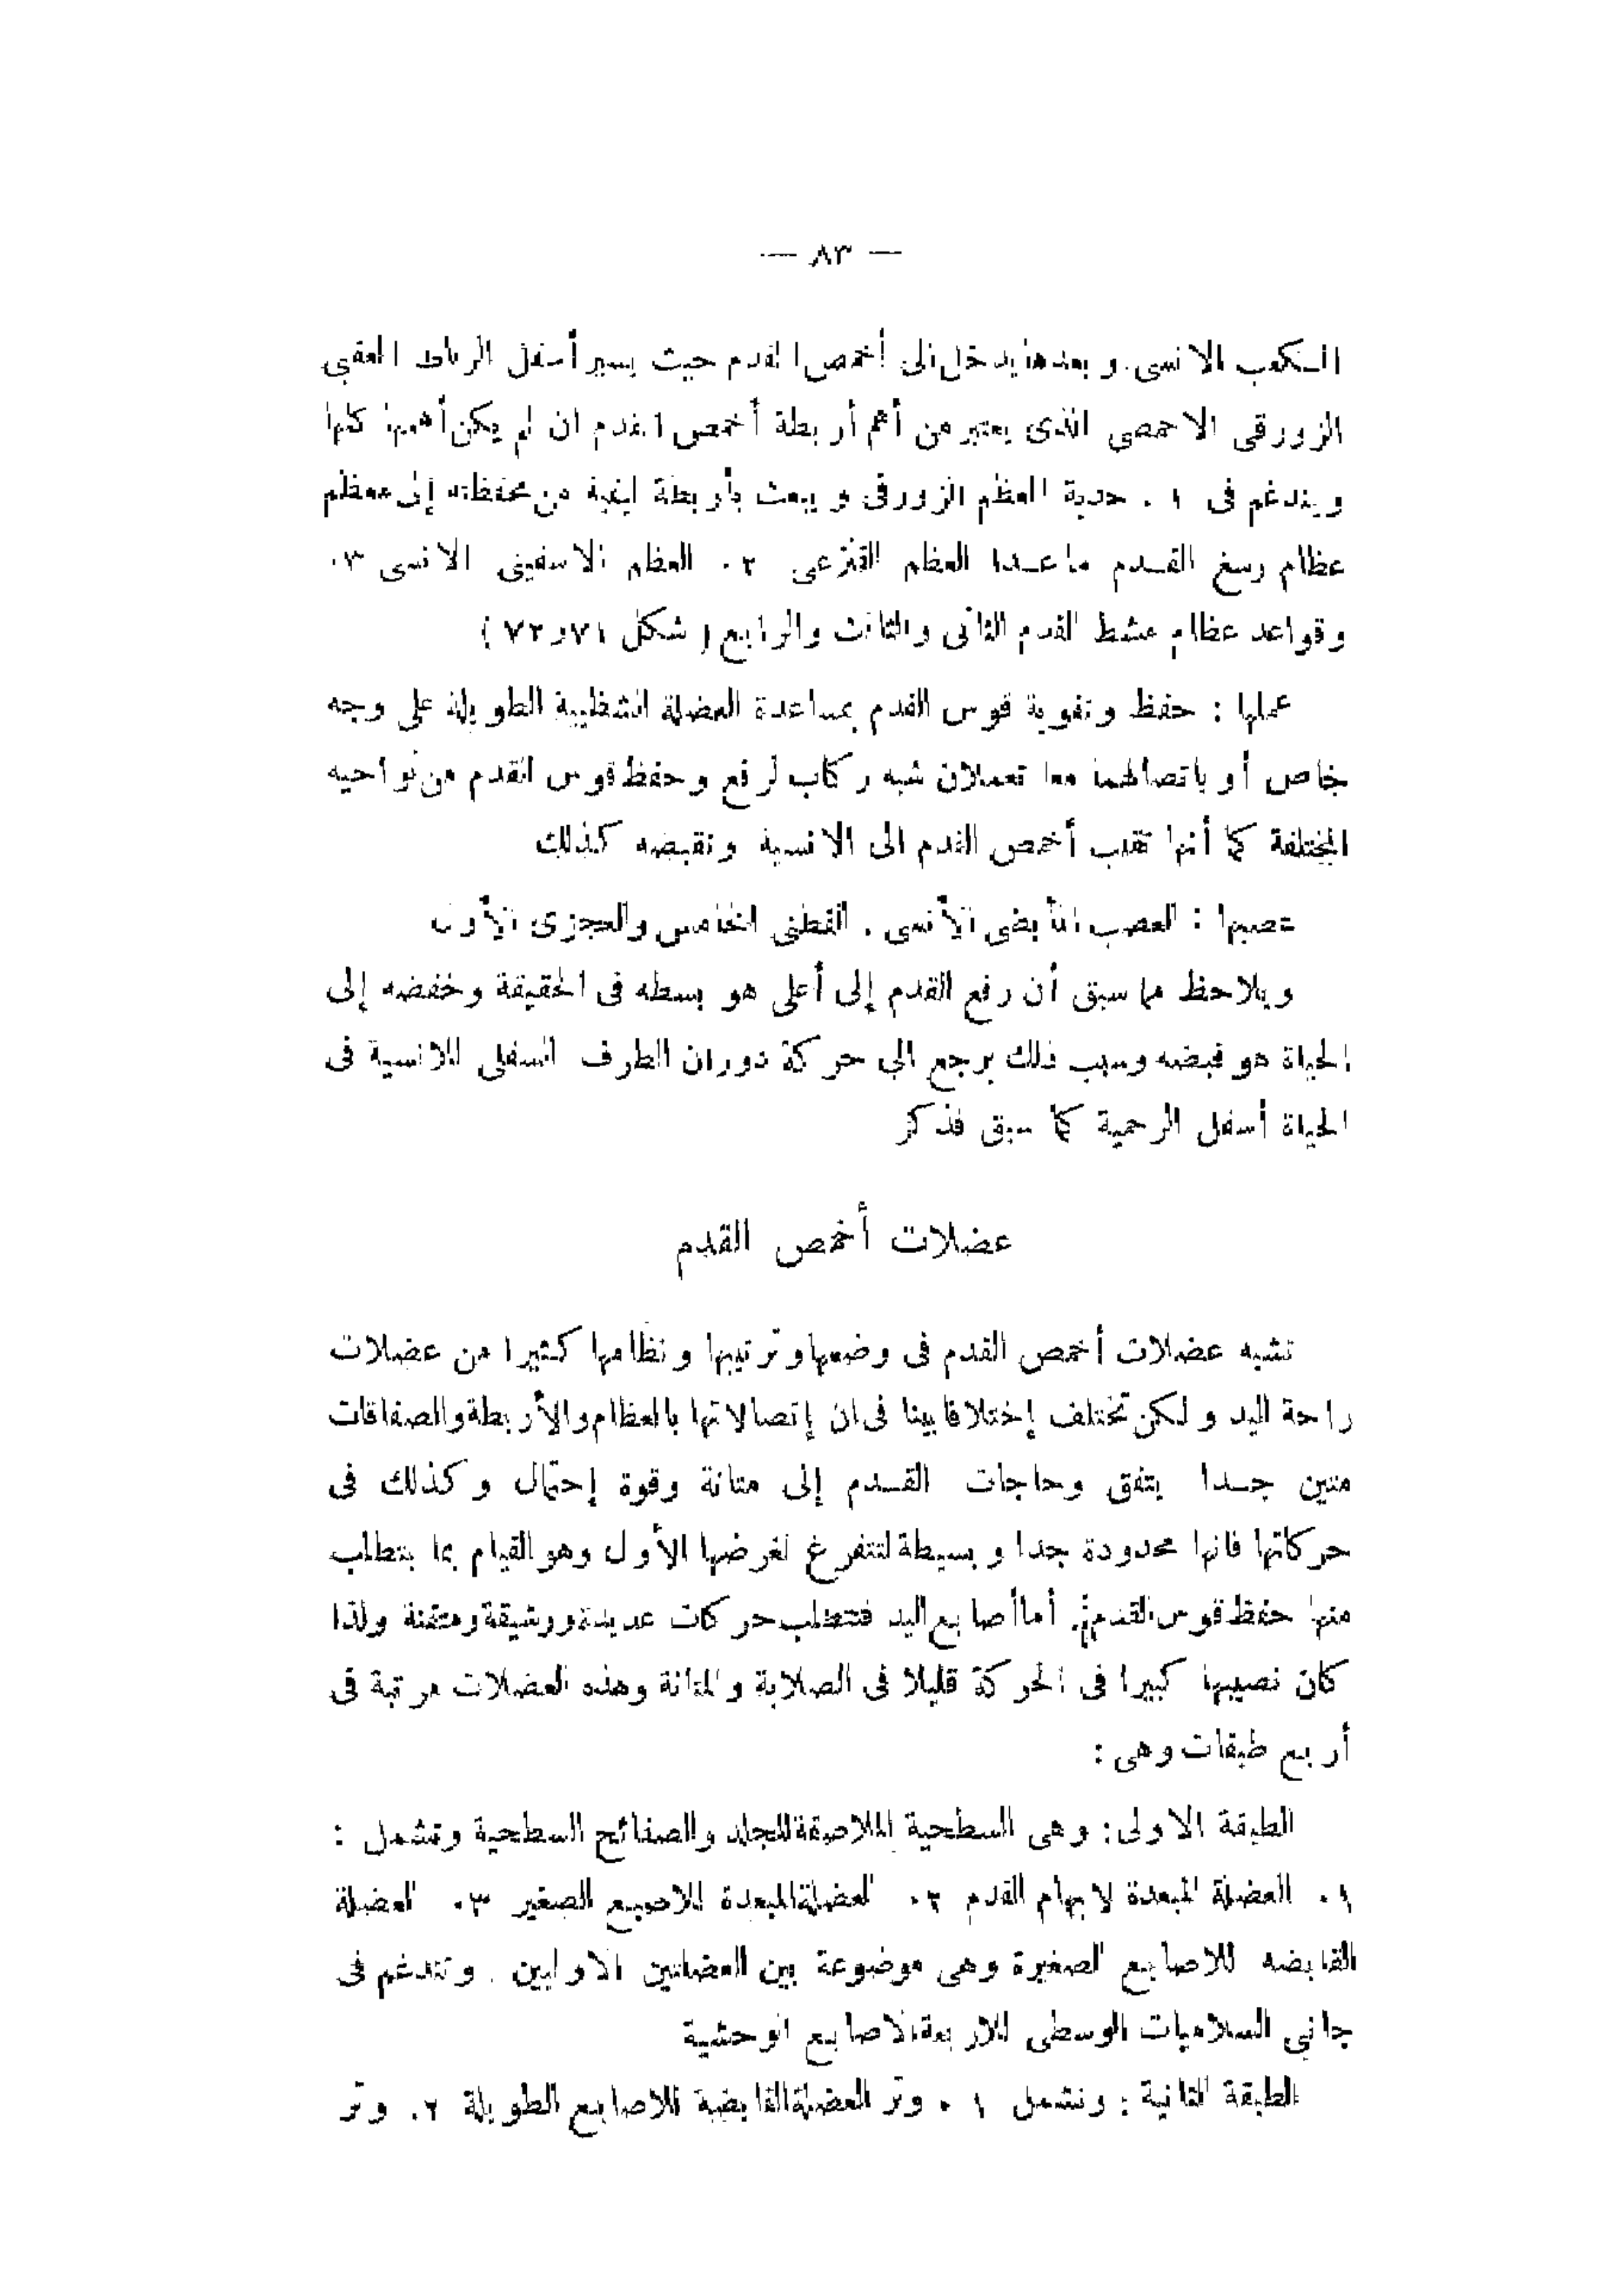 — ٨٣ —
الكعب الانسى. وبعدها يدخل الى أخمص القدم حيث يسير أسفل الرباط العقبى
الزورقى الاخمصى الذى يعتبر من أهم أربطة أخمص القدم ان لم يكن أهمها كلها
ويندغم فى ١ . حدبة العظم الزورقى ويبعث بأربطة ليفية من محفظته إلى معظم
عظام رسغ القـدم ما عـدا العظم القنزعى ٢ . العظم الاسفينى الانسى ٣.
وقواعد عظام مشط القدم الثانى والثالث والرابع ( شكل ٧١و٧٢ )
عملها : حفظ وتقوية قوس القدم بمساعدة العضلة الشظيية الطويلة على وجه
خاص أو باتصالهما معا تعملان شبه ركاب لرفع وحفظ قوس القدم من نواحيه
المختلفة كما أنها تقلب أخمص القدم الى الانسية وتقبضه كذلك
عصبها : العصب المأبضى الأنسى . القطنى الخامس والعجزى الأول
ويلاحظ مما سبق أن رفع القدم إلى أعلى هو بسطه فى الحقيقة وخفضه إلى
الحياة هو قبضه وسبب ذلك يرجع الى حركة دوران الطرف السفلى للانسية فى
الحياة أسفل الرحمية كما سبق فذكر
عضلات أخمص القدم
تشبه عضلات أخمص القدم فى وضعها وترتيبها ونظامها كثيرا من عضلات
راحة اليد ولكن تختلف إختلافا بينا فى ان إتصالاتها بالعظام والأربطة والصفاقات
متين جـدا يتفق وحاجات القـدم إلى متانة وقوة إحتمال وكذلك فى
حركاتها فانها محدودة جدا وبسيطة لتتفرغ لغرضها الأول وهو القيام بما يتطلب
منها حفظ قوس القدم. أما أصابع اليد فتتطلب حركات عديدة ورشيقة ومتقنة ولذا
كان نصيبها كبيرا فى الحركة قليلا فى الصلابة والمتانة وهذه العضلات مرتبة فى
أربع طبقات وهى :
الطبقة الاولى: وهى السطحية الملاصقة للجلد والصفائح السطحية وتشمل :
١ . العضلة المبعدة لابهام القدم ٢ . العضلة المبعدة للاصبع الصغير ٣ . العضلة
القابضه للاصابع الصغيرة وهى موضوعة بين العضلتين الاوليين . وتندغم فى
جانبى السلاميات الوسطى للاربعة الاصابع الوحشية
الطبقة الثانية : وتشمل ١ . وتر العضلة القابضة للاصابع الطويلة ٢. وتر